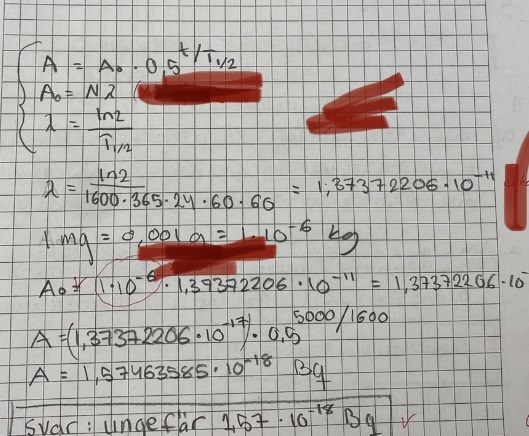 A = A₀ · 0,5^t/T₁/₂
A₀ = Nλ
λ = ln2/T₁/₂
λ = ln2/1600·365·24·60·60 = 1,37372206·10⁻¹¹
1 mg = 0,001g = 1·10⁻⁶ kg
A₀ = 1·10⁻⁶ · 1,37372206·10⁻¹¹ = 1,37372206·10⁻
A = (1,37372206·10⁻¹⁷) · 0,5^5000/1600
A = 1,57463585·10⁻¹⁸ Bq
Svar: ungefär 1,57·10⁻¹⁸ Bq